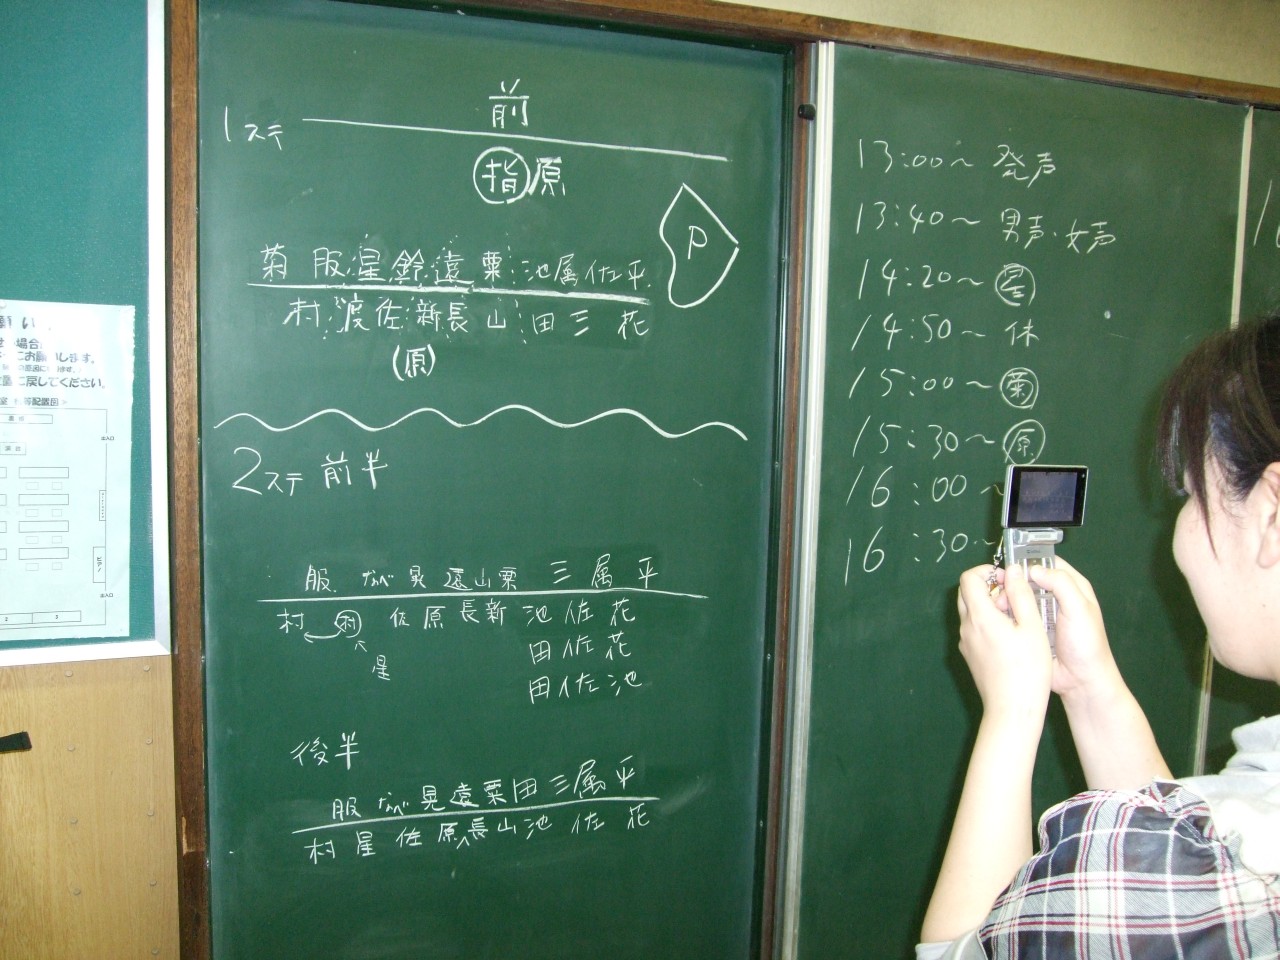 前
1ステ
指原
P
菊 服 星 鈴 遠 粟 池 属 佐 平
村 渡 佐 新 長 山 田 三 花
(原)
2ステ 前半
服 なべ 晃 遠 山 粟 三 属 平
村 村 佐 原 長 新 池 佐 花
星
田 佐 花
田 佐 池
後半
服 なべ 晃 遠 粟 田 三 属 平
村 星 佐 原 長 山 池 佐 花
13:00~ 発声
13:40~ 男声・女声
14:20~ 星
14:50~ 休
15:00~ 菊
15:30~ 原
16:00~
16:30~
願い
場合
にお願いします。
に戻してください。
等配置図
出入口
出入口